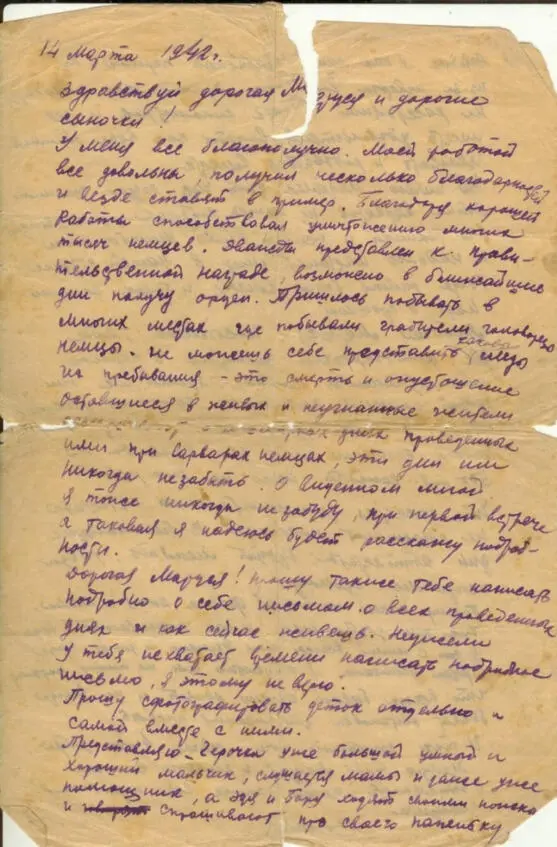 14 марта 1942 г.
Здравствуй дорогая Ма уся и дорогие
сыночки!
У меня все благополучно. Моей работой
все довольны, получил несколько благодарностей
и везде ставят в пример. Благодаря хорошей
работы способствовал уничтожению многих
тысяч немцев. Дважды представлен к прави-
тельственной награде, возможно в ближайшие
дни получу орден. Пришлось побывать в
многих местах где побывали грабители
немцы. Не можешь себе представить какова следы
их пребывания - это смерть и опустошение
оставшиеся в живых и неугнанные жители
днях проведенных
ими при варварах немцах, эти дни им
никогда незабыть. О виденном мной
я тоже никогда незабуду, при первой встрече
а таковая я надеюсь будет расскажу подроб-
ности.
Дорогая Маруся! Прошу также тебе написать
подробно о себе письмом о всех проведенных
днях и как сейчас живешь. Неужели
у тебя нехватает времени написать подробное
письмо, я этому не верю.
Прошу сфотографировать деток отдельно и
самой вместе с ними.
Представляю Герочка уже большой умный и
хороший мальчик, слушается мамы и даже уже
помощник, а Эдя и Боря ходят своими ножками
и спрашивают про своего папеньку